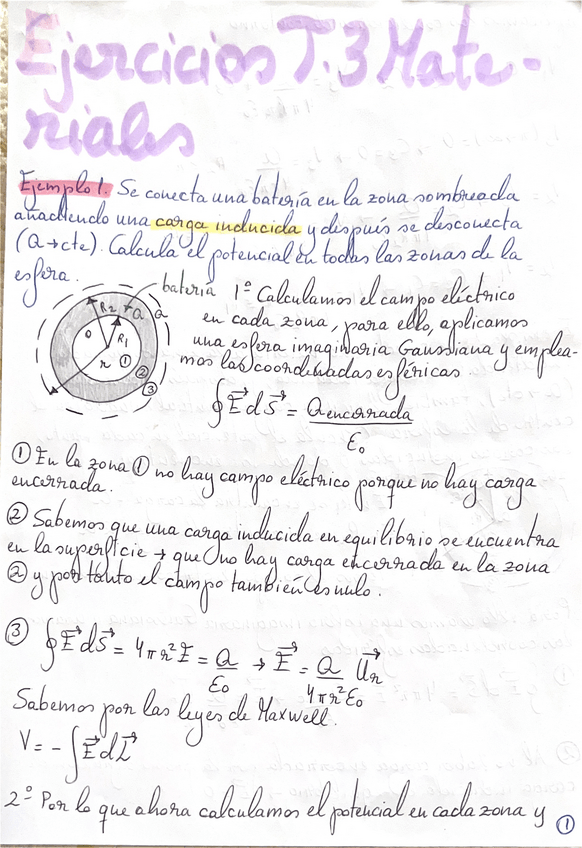 Ejercicios T.3 Mate-
riales
Ejemplo 1. Se conecta una batería en la zona sombreada
añadiendo una carga inducida y después se desconecta
(Q→cte). Calcula el potencial en todas las zonas de la
esfera.
batería
R2 +Q Q
0 R1
r ①
②
③
1º Calculamos el campo eléctrico
en cada zona, para ello, aplicamos
una esfera imaginaria Gaussiana y emplea-
mos las coordenadas esféricas.
∮E⃗ dS⃗ = Qencerrada / ε₀
① En la zona ① no hay campo eléctrico porque no hay carga
encerrada.
② Sabemos que una carga inducida en equilibrio se encuentra
en la superficie → que no hay carga encerrada en la zona
② y por tanto el campo también es nulo.
③ ∮E⃗ dS⃗ = 4πr²E = Q/ε₀ → E⃗ = Q/4πr²ε₀ U⃗r
Sabemos por las leyes de Maxwell.
V = -∫E⃗ dL⃗
2º Por lo que ahora calculamos el potencial en cada zona y
①